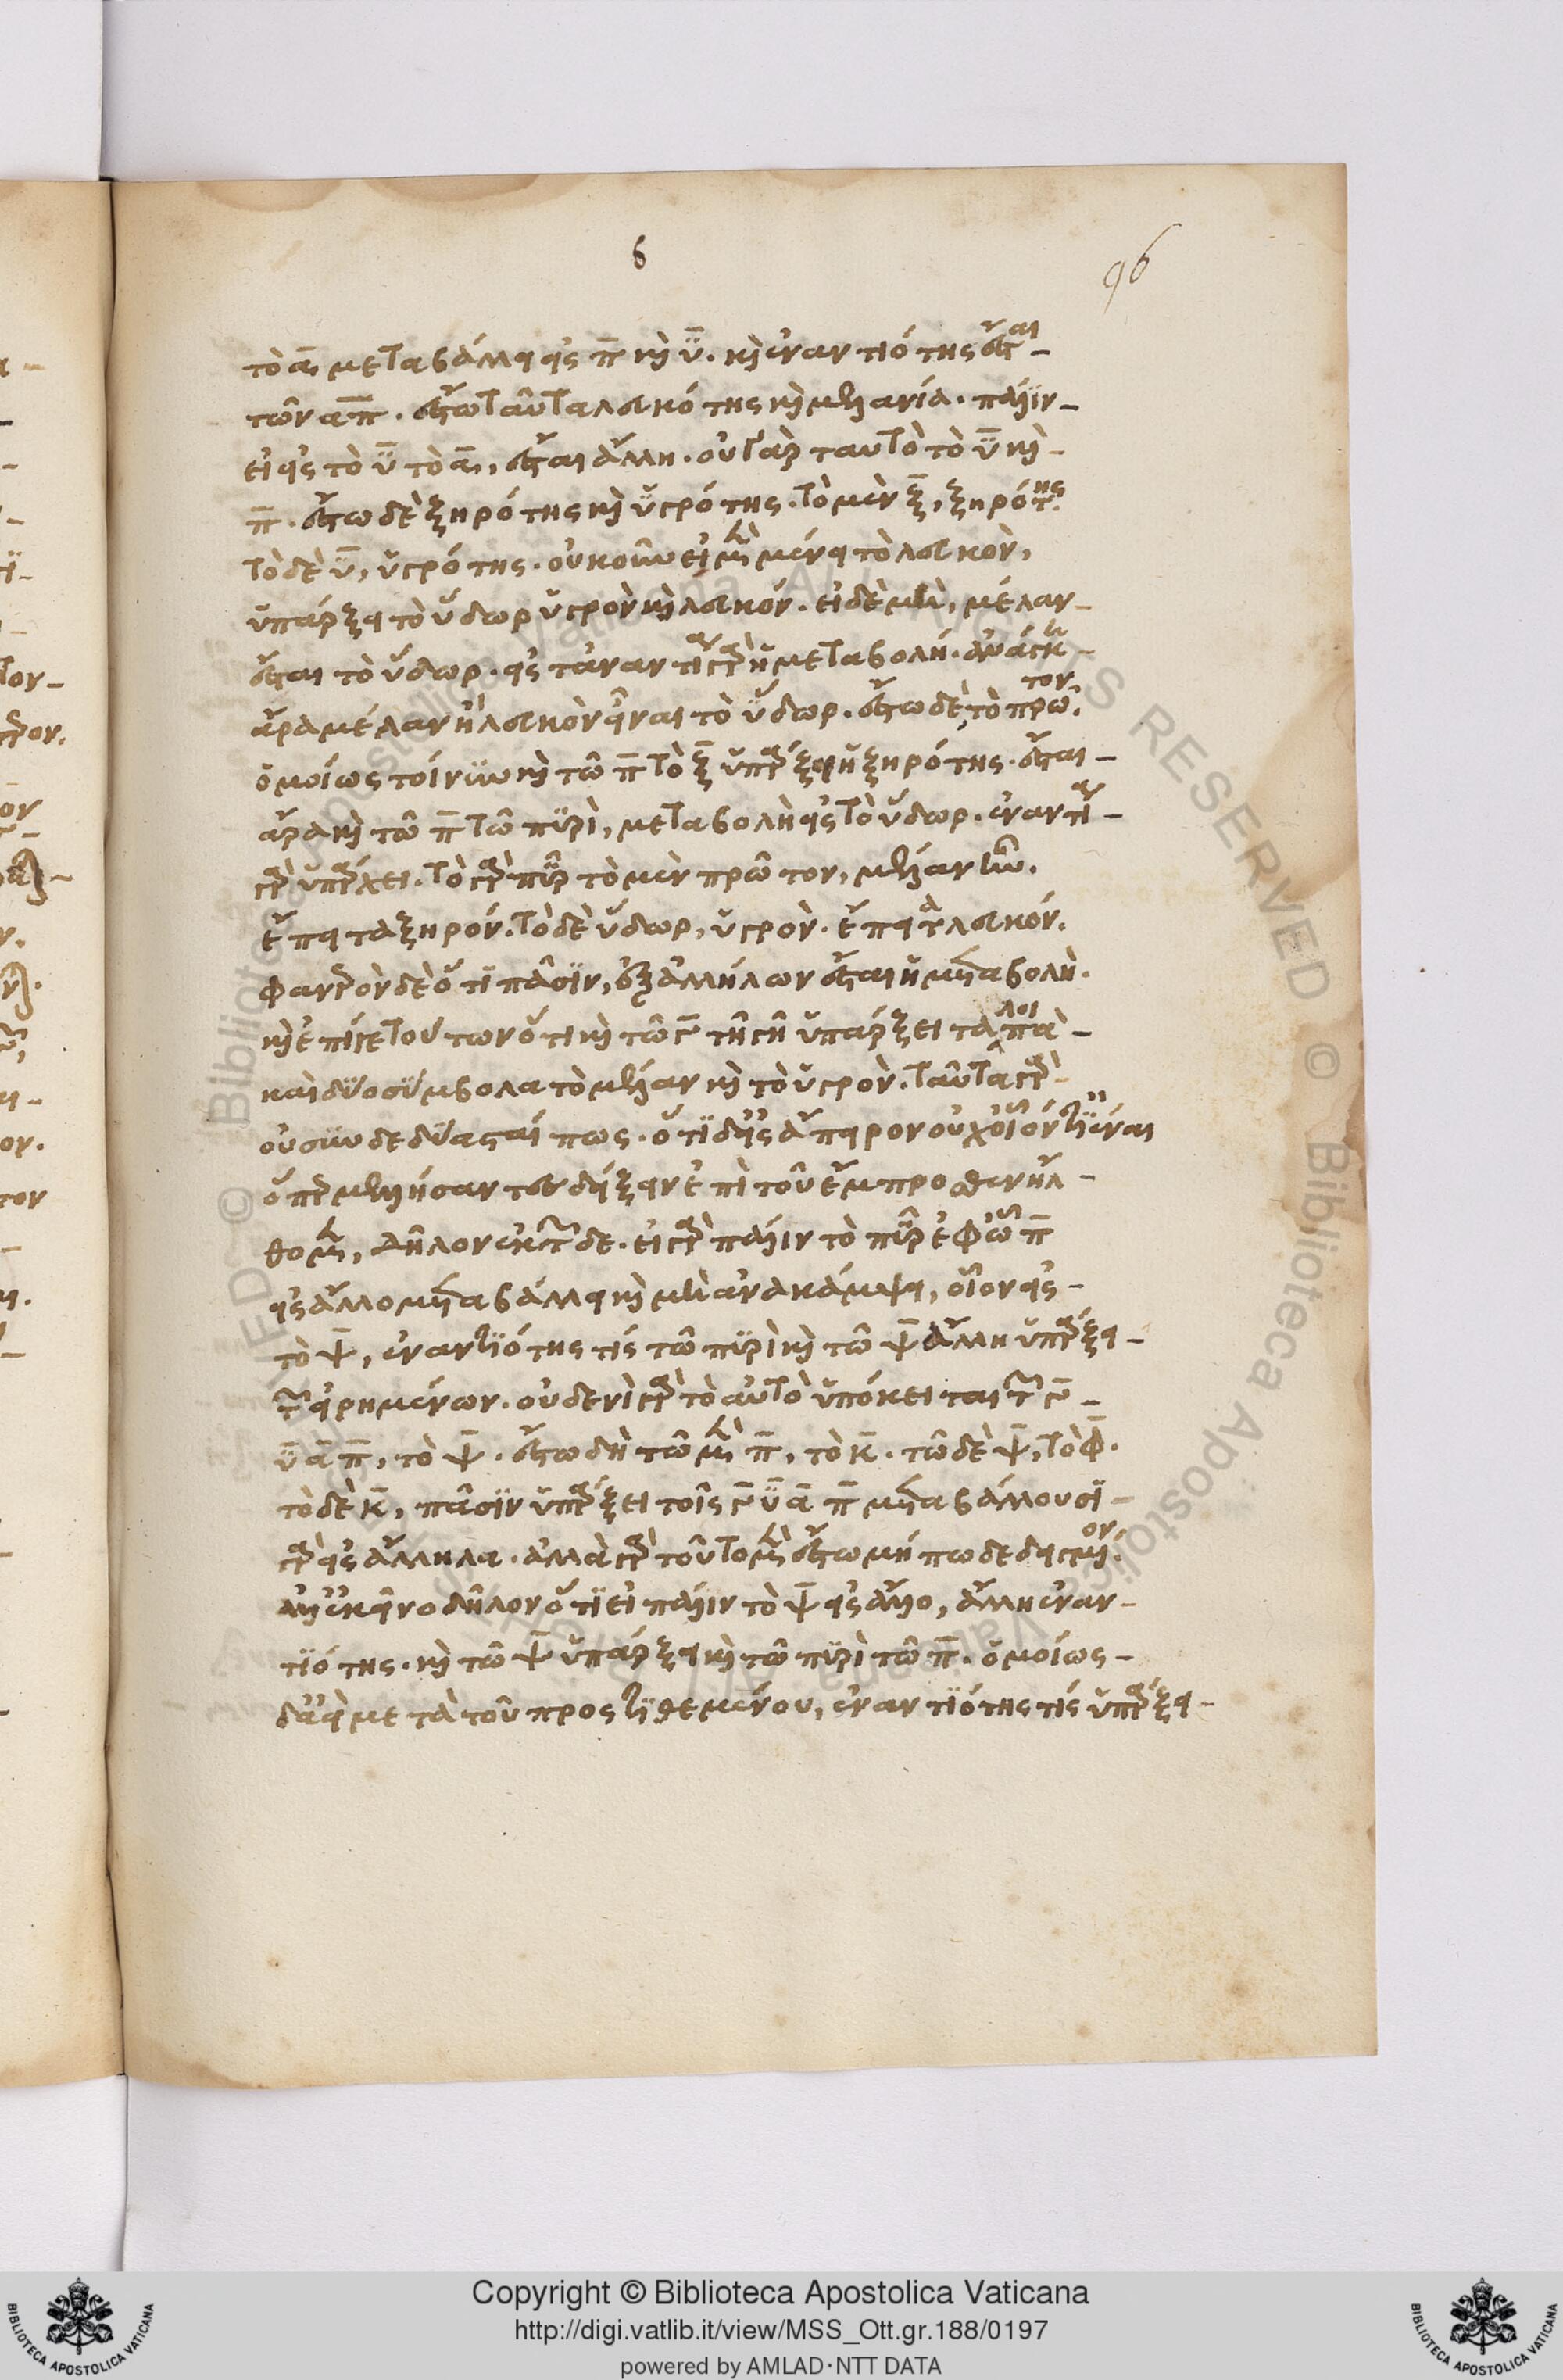 β
96
τὸ α, μεταβάλλει εἰς π καὶ ϋ. καὶ ἐναντιότης ἔσται
τῶν α π. ἔστω ταῦτα λευκότης καὶ μελανία. πάλιν
εἰ εἰς τὸ ϋ τὸ α, ἔσται ἄλλη. οὐ γὰρ ταυτὸ τὸ ϋ καὶ
π. ἔστω δὲ ξηρότης καὶ ὑγρότης. τὸ μὲν ξ, ξηρότης
τὸ δὲ ϋ, ὑγρότης. οὐκοῦν εἰ μὲν μένει τὸ λευκὸν,
ὑπάρξει τὸ ὕδωρ ὑγρὸν καὶ λευκόν. εἰ δὲ μὴ, μέλαν
ἔσται τὸ ὕδωρ. εἰς τἀναντία γὰρ ἡ μεταβολή. ἀνάγκη
ἄρα μέλαν ἢ λευκὸν εἶναι τὸ ὕδωρ. ἔστω δὲ τὸ πρῶτον.
ὁμοίως τοίνυν καὶ τῶ π τὸ ξ ὑπάρξει ἡ ξηρότης. ἔσται
ἄρα καὶ τῶ π τῶ πυρὶ, μεταβολὴ εἰς τὸ ὕδωρ. ἐναντία
γὰρ ὑπάρχει. τὸ γὰρ πῦρ τὸ μὲν πρῶτον, μέλαν ἦν.
ἔπειτα ξηρόν. τὸ δὲ ὕδωρ, ὑγρὸν. ἔπειτα λευκόν.
φανερὸν δὲ ὅτι πᾶσιν, ἐξ ἀλλήλων ἔσται ἡ μεταβολὴ.
καὶ ἐπί γε τούτων ὅτι καὶ τῶ γ τῆ γῆ ὑπάρξει τὰ λοιπὰ
καὶ δύο σύμβολα τὸ μέλαν καὶ τὸ ὑγρὸν. ταῦτα γὰρ
οὐ συνδεδύασταί πως. ὅτι δ' εἰς ἄπειρον οὐχ οἷόν τ' ἰέναι
ὅπερ μελλήσαντες δείξειν ἐπὶ τοῦ ἔμπροσθεν ἤλ
θομεν, δῆλον ἐκ τῶν δε. εἰ γὰρ πάλιν τὸ πῦρ ἐφ' ὧ π
εἰς ἄλλο μεταβάλλει καὶ μὴ ἀνακάμψει, οἷον εἰς
τὸ ψ, ἐναντιότης τίς τῶ πυρὶ καὶ τῶ ψ ἄλλη ὑπάρξει
τῶν εἰρημένων. οὐδενὶ γὰρ τὸ αὐτὸ ὑπόκειται τῶν γ
ϋ α π, τὸ ψ. ἔστω δὴ τῶ μὲν π, τὸ κ. τῶ δὲ ψ, τὸ φ.
τὸ δὲ κ, πᾶσιν ὑπάρξει τοῖς γ ϋ α π μεταβάλλουσι
γὰρ εἰς ἄλληλα. ἀλλὰ γὰρ τοῦτο μὲν ἔστω μήπω δεδειγμένον.
ἀλλ' ἐκεῖνο δῆλον ὅτι εἰ πάλιν τὸ ψ εἰς ἄλλο, ἄλλη ἐναν
τιότης. καὶ τῶ ψ ὑπάρξει καὶ τῶ πυρὶ τῶ π. ὁμοίως
δ' ἀεὶ μετὰ τοῦ προστιθεμένου, ἐναντιότης τίς ὑπάρξει
Copyright © Biblioteca Apostolica Vaticana
http://digi.vatlib.it/view/MSS_Ott.gr.188/0197
powered by AMLAD·NTT DATA